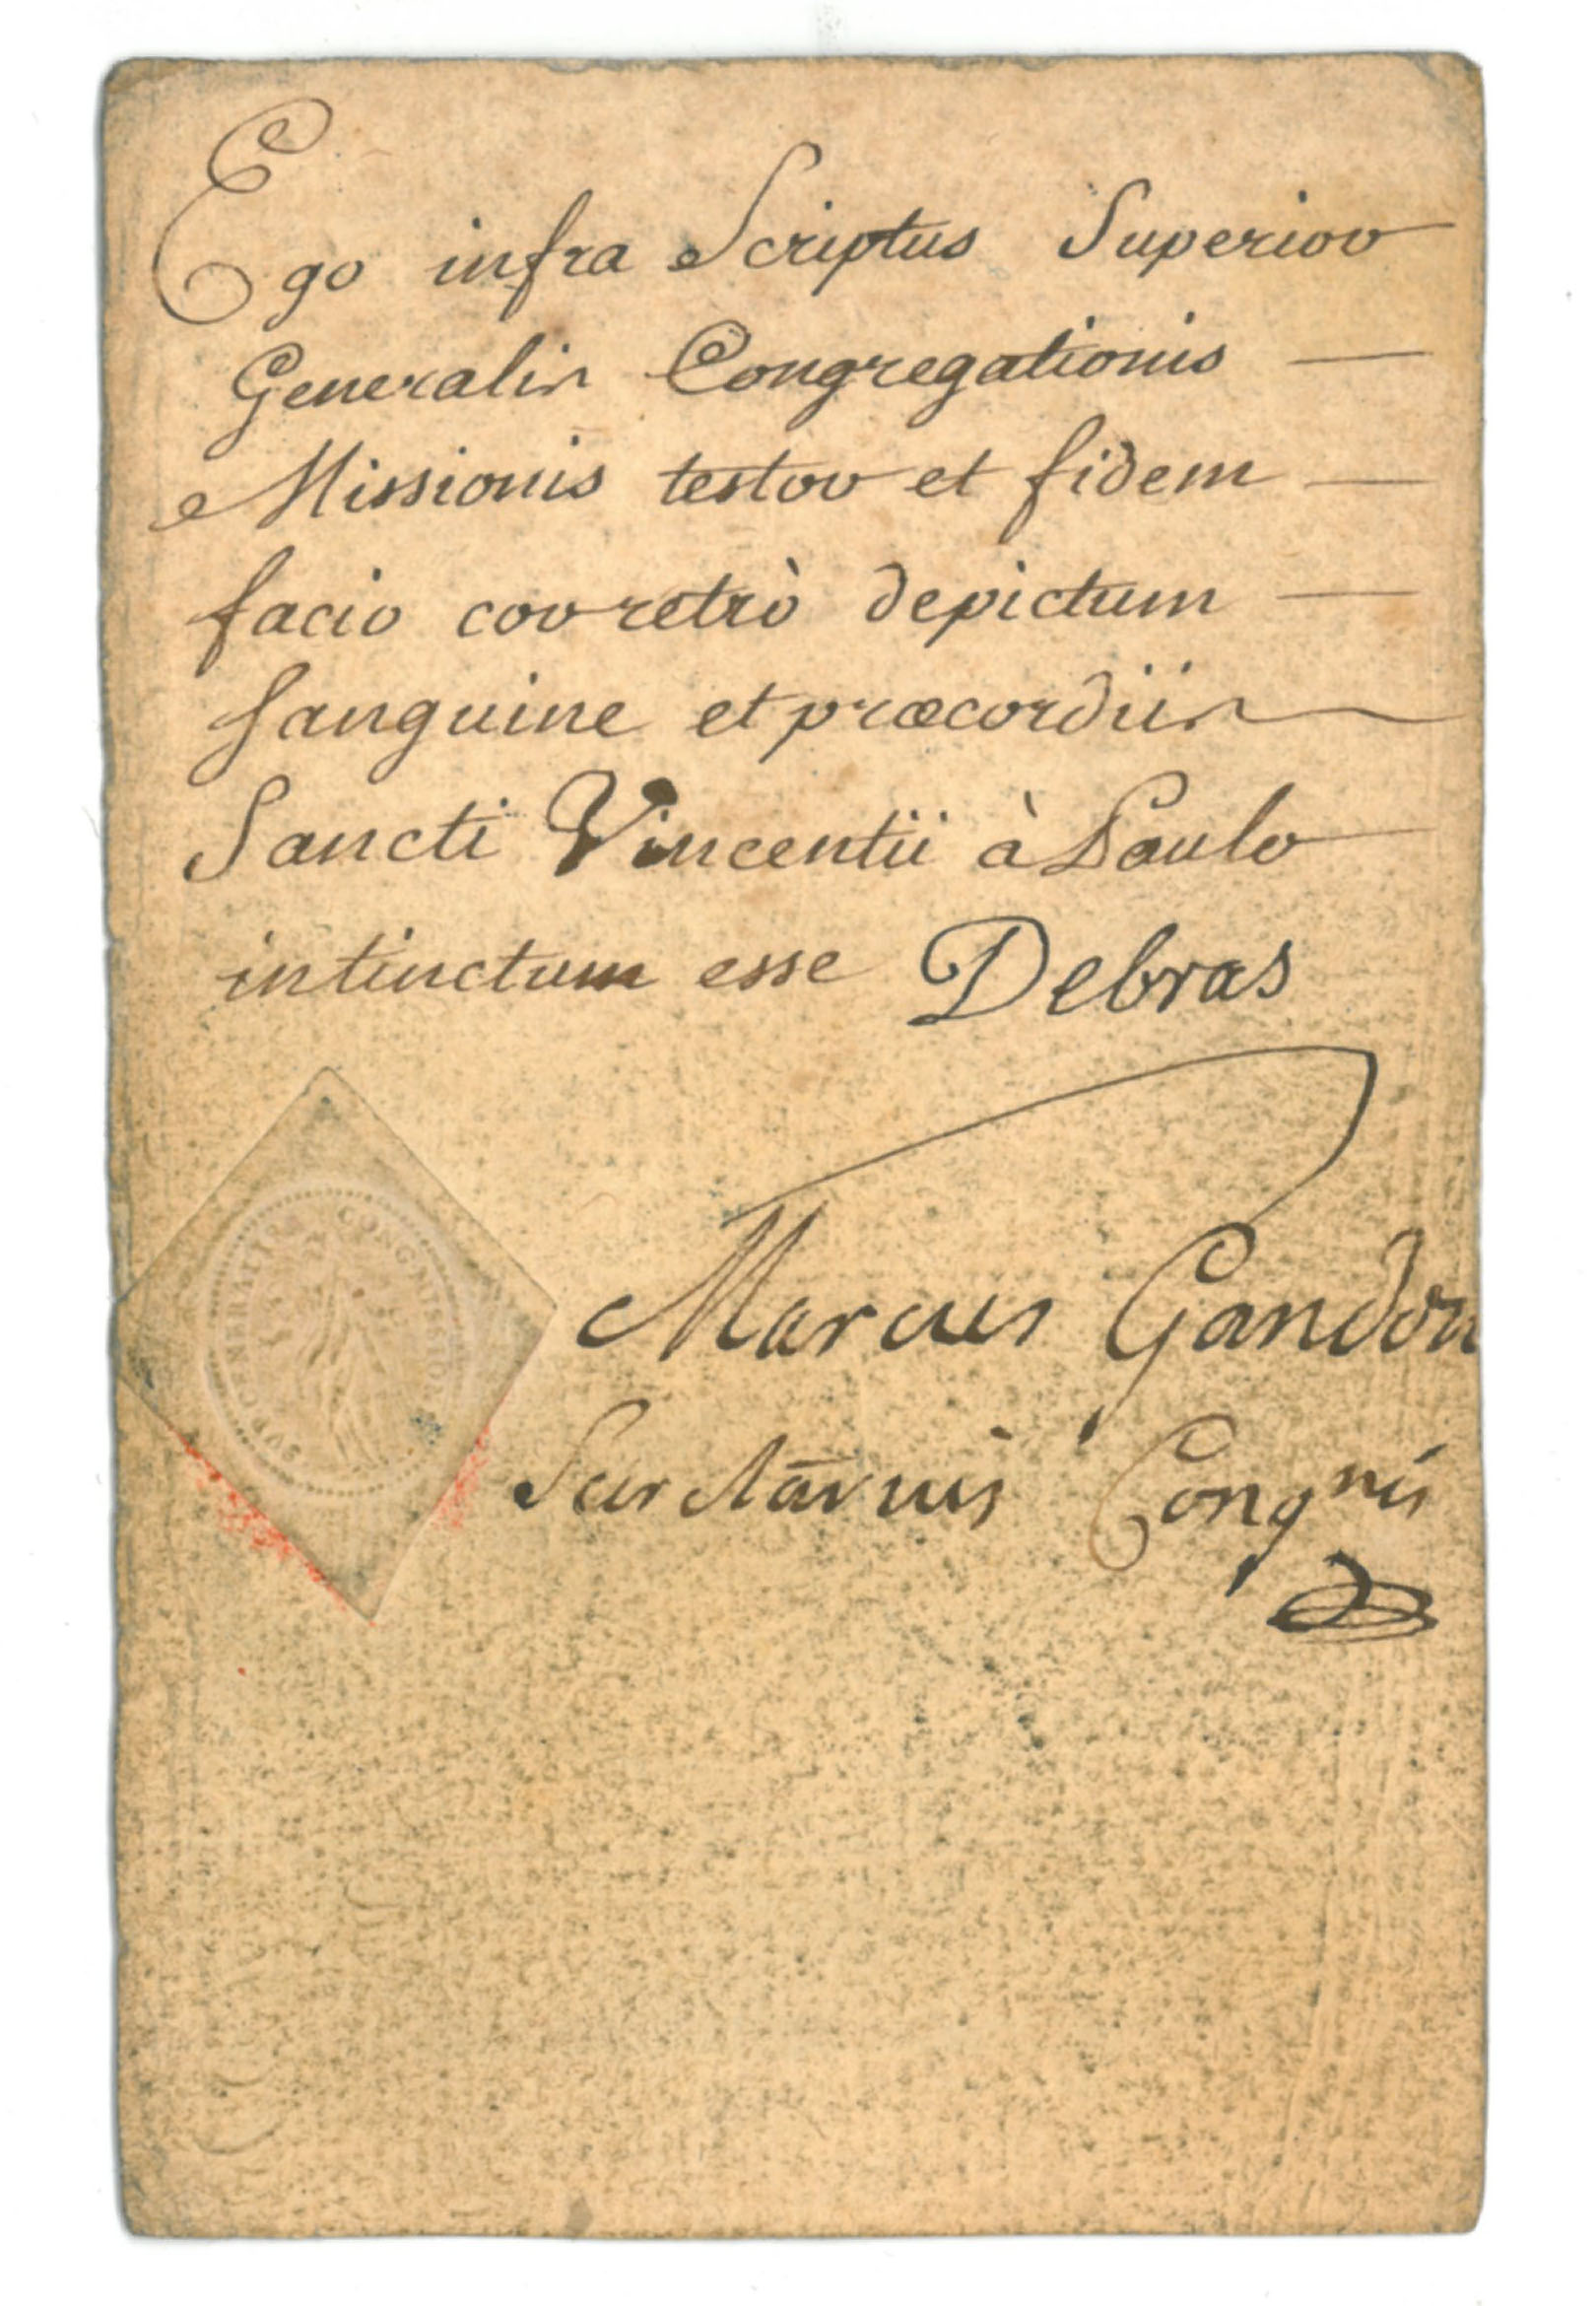 Ego infra Scriptus Superior
Generalis Congregationis
Missionis testor et fidem
facio cor retrò depictum
sanguine et præcordiis
Sancti Vincentii à Paulo
intinctum esse Debras
Marcus Gandon
Congnis
SUP GENERALIS CONGR MISSION